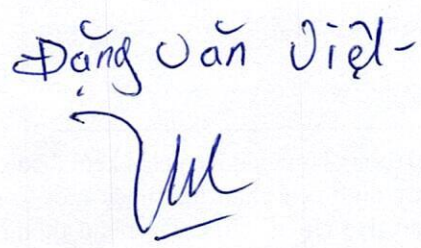 Đặng Văn Việt